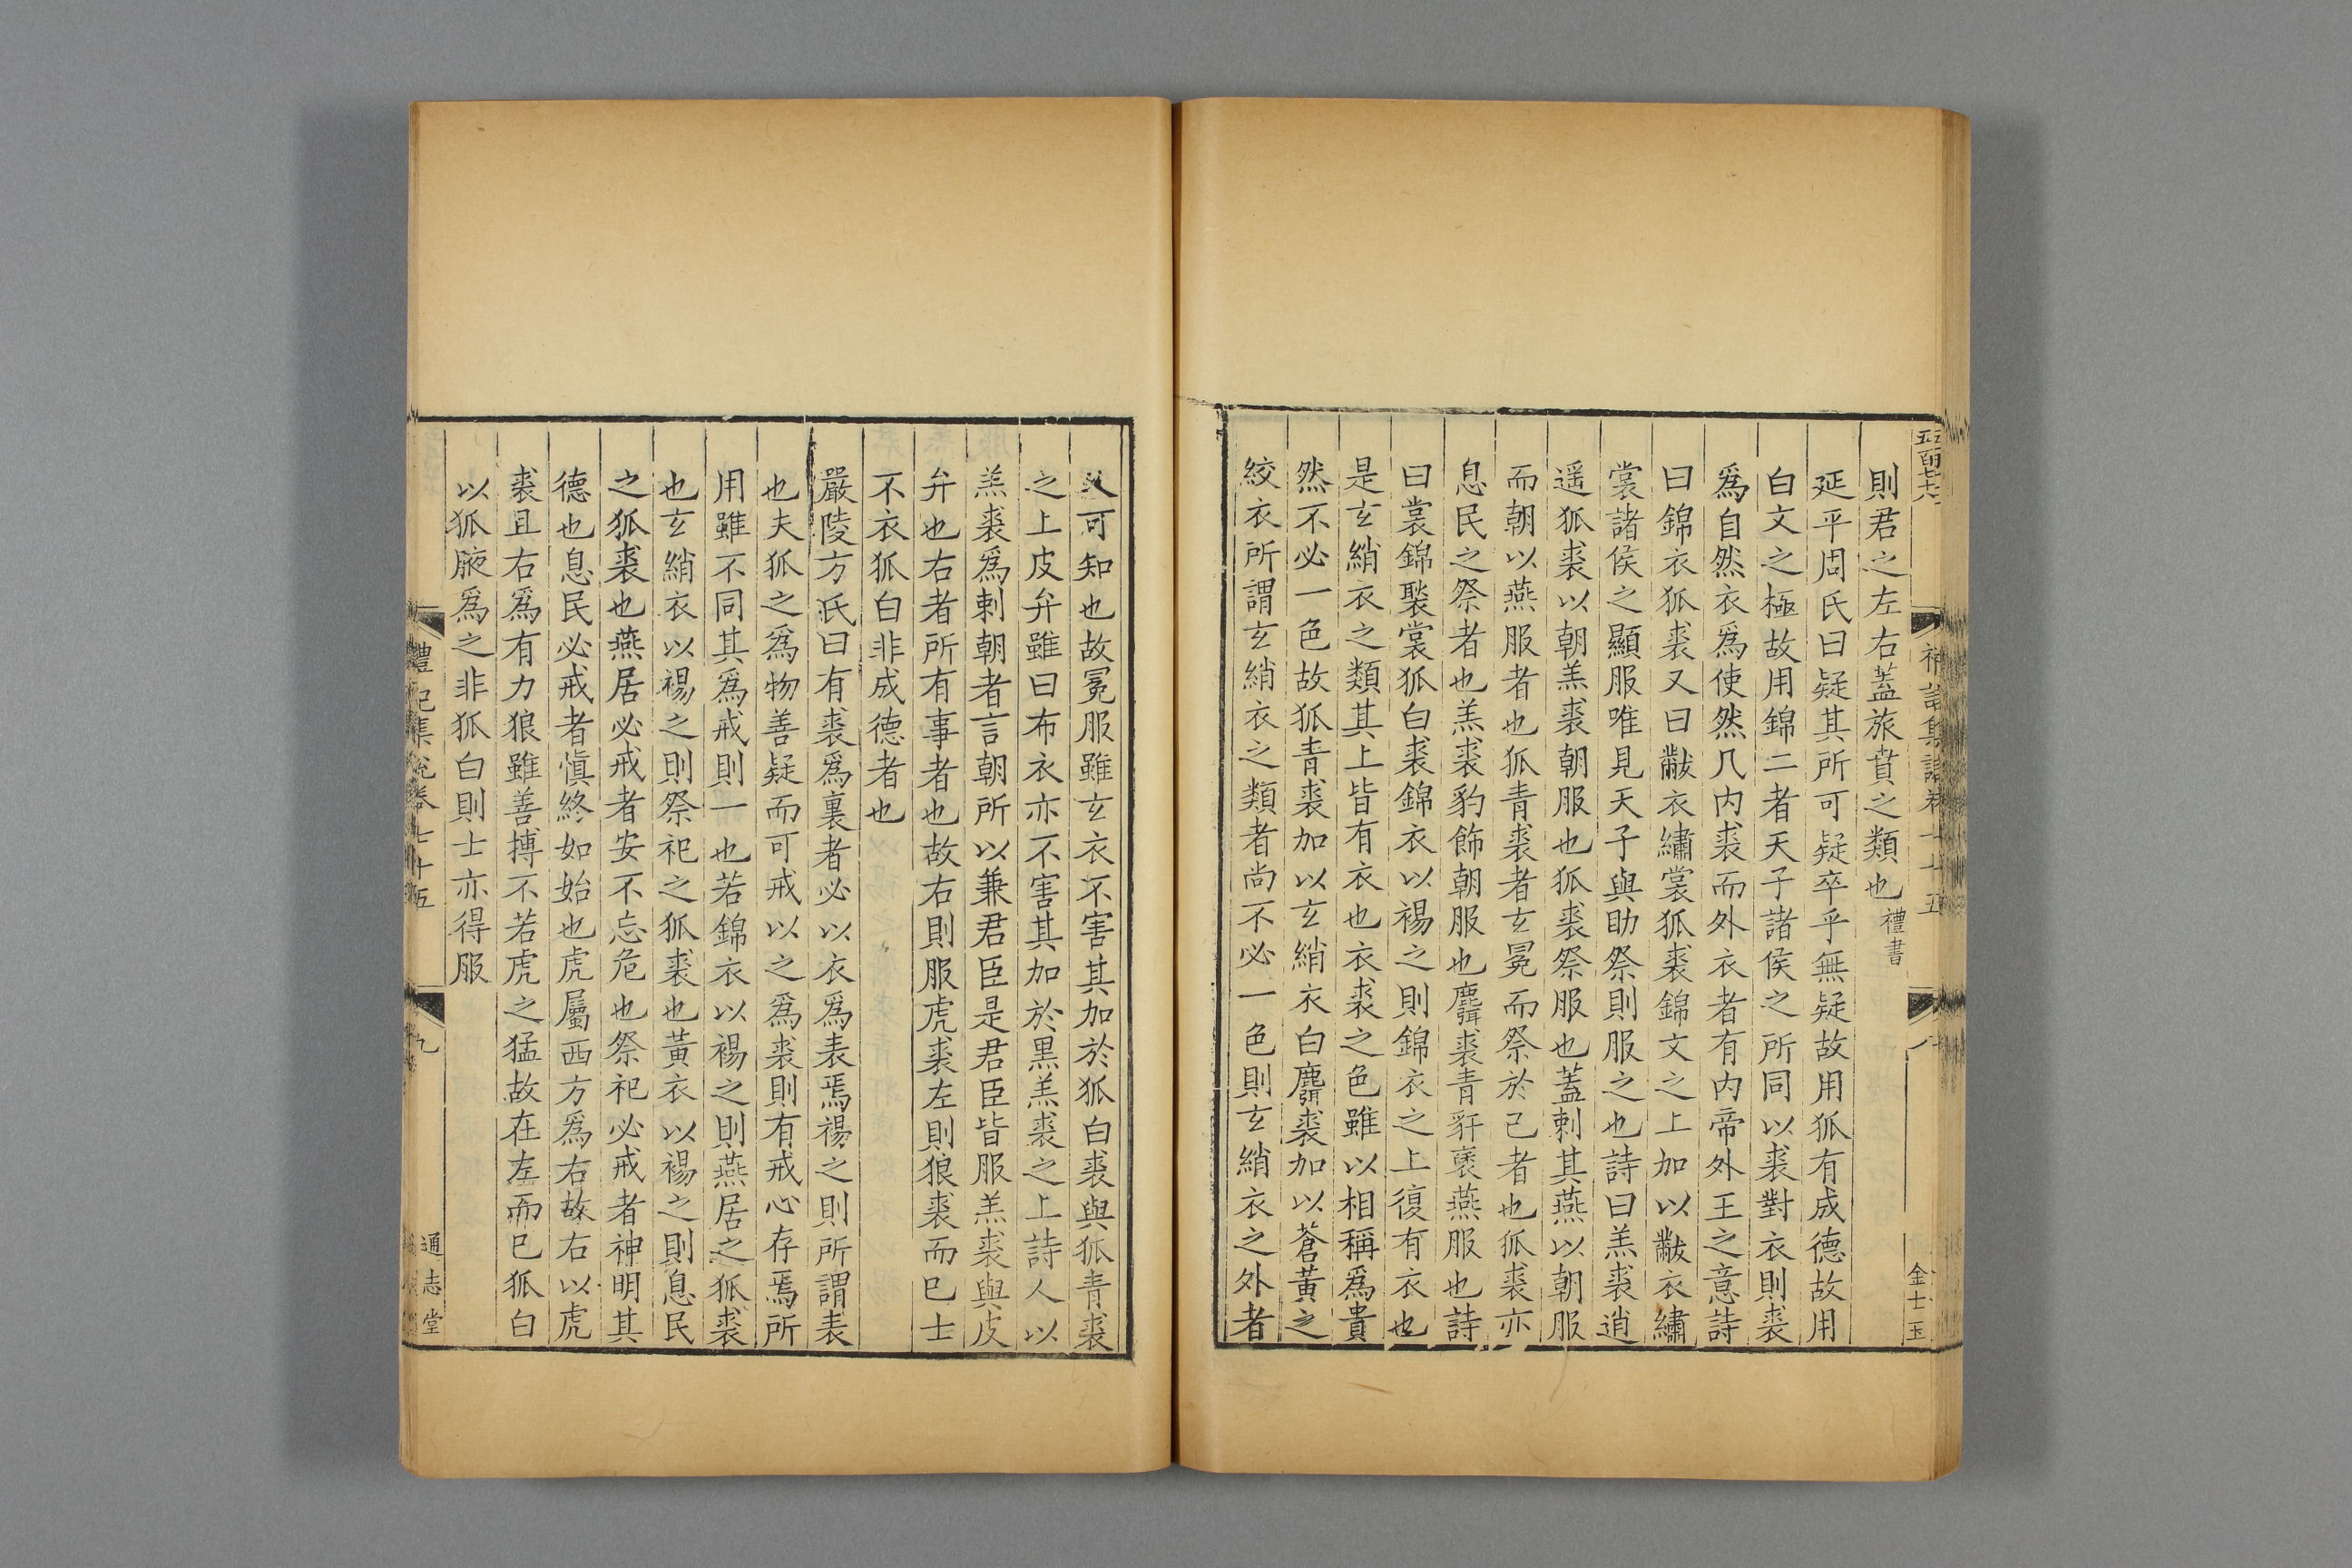 則君之左右蓋旅賁之類也禮書
延平周氏曰疑其所可疑卒乎無疑故用狐有成德故用
白文之極故用錦二者天子諸侯之所同以裘對衣則裘
爲自然衣爲使然凡内裘而外衣者有内帝外王之意詩
曰錦衣狐裘又曰黻衣繡裳狐裘錦文之上加以黻衣繡
裳諸侯之顯服唯見天子與助祭則服之也詩曰羔裘逍
遥狐裘以朝羔裘朝服也狐裘祭服也蓋刺其燕以朝服
而朝以燕服者也狐青裘者玄冕而祭於己者也狐裘亦
息民之祭者也羔裘豹飾朝服也麛裘青豻褎燕服也詩
曰裳錦褧裳狐白裘錦衣以裼之則錦衣之上復有衣也
是玄綃衣之類其上皆有衣也衣裘之色雖以相稱爲貴
然不必一色故狐青裘加以玄綃衣白麛裘加以蒼黃之
絞衣所謂玄綃衣之類者尚不必一色則玄綃衣之外者
金士玉
又可知也故冕服雖玄衣不害其加於狐白裘與狐青裘
之上皮弁雖曰布衣亦不害其加於黒羔裘之上詩人以
羔裘爲刺朝者言朝所以兼君臣是君臣皆服羔裘與皮
弁也右者所有事者也故右則服虎裘左則狼裘而巳士
不衣狐白非成德者也
嚴陵方氏曰有裘爲裏者必以衣爲表焉裼之則所謂表
也夫狐之爲物善疑而可戒以之爲裘則有戒心存焉所
用雖不同其爲戒則一也若錦衣以裼之則燕居之狐裘
也玄綃衣以裼之則祭祀之狐裘也黃衣以裼之則息民
之狐裘也燕居必戒者安不忘危也祭祀必戒者神明其
德也息民必戒者愼終如始也虎屬西方爲右故右以虎
裘且右爲有力狼雖善搏不若虎之猛故在左而巳狐白
以狐腋爲之非狐白則士亦得服
禮記集說卷七十五
九
通志堂